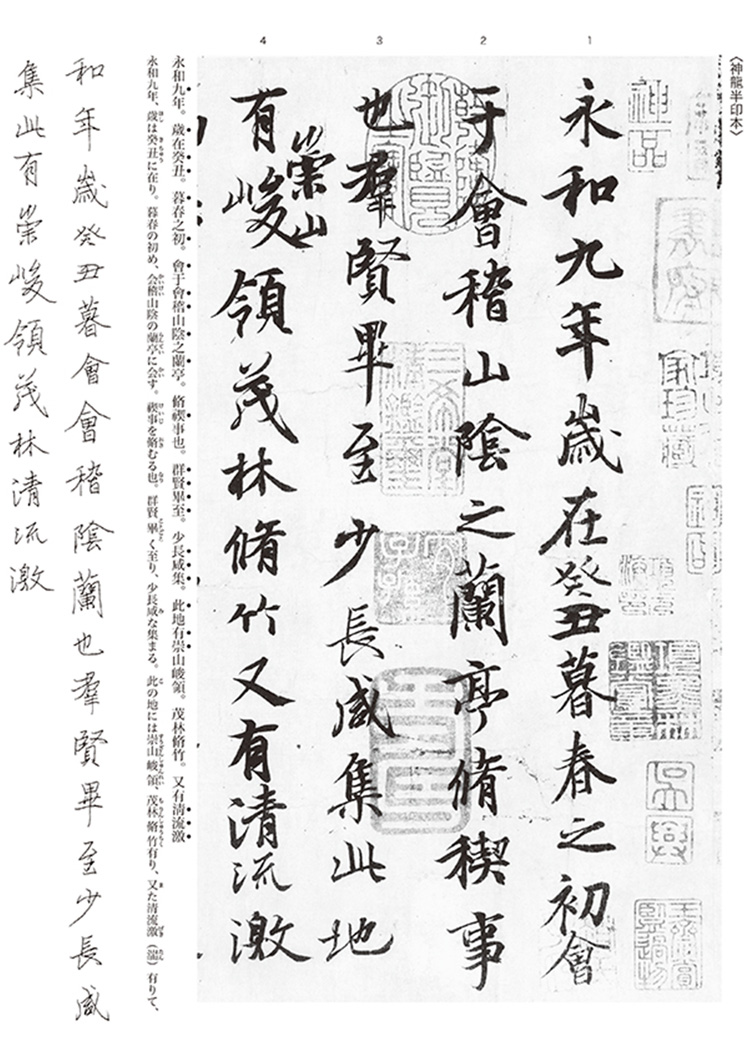 〈神龍半印本〉
1
2
3
4
永和九年歲在癸丑暮春之初會
于會稽山陰之蘭亭脩稧事
也羣賢畢至少長咸集此地
有崇山峻領茂林脩竹又有清流激
神品
永和九年。歳在癸丑。暮春之初。會于會稽山陰之蘭亭。脩禊事也。群賢畢至。少長咸集。此地有崇山峻領。茂林脩竹。又有清流激
永和九年、歳は癸丑に在り。暮春の初め、会稽山陰の蘭亭に会す。禊事を脩むる也。群賢畢く至り、少長咸な集まる。此の地には崇山峻領、茂林脩竹有り、又た清流激(湍)有りて、
和年歲癸丑暮會會稽陰蘭也羣賢畢至少長咸
集此有崇峻領茂林清流激